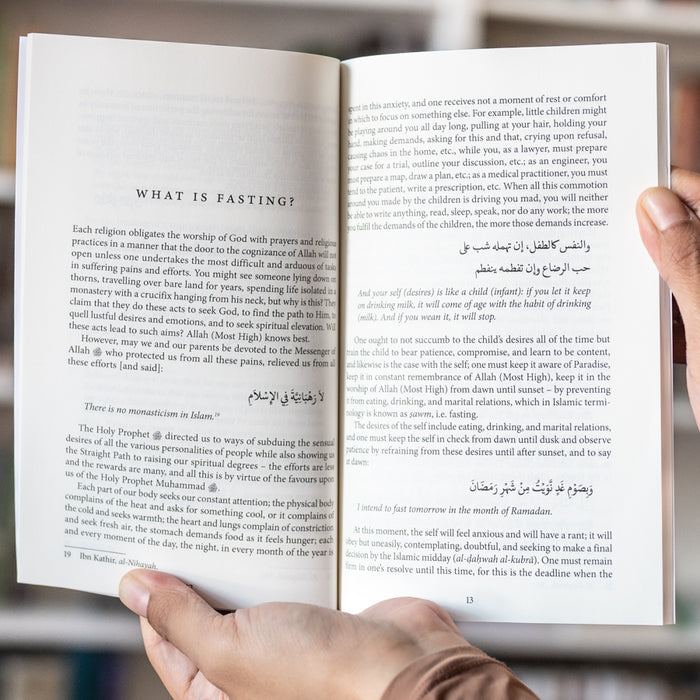 WHAT IS FASTING?
Each religion obligates the worship of God with prayers and religious
practices in a manner that the door to the cognizance of Allah will not
open unless one undertakes the most difficult and arduous of tasks
in suffering pains and efforts. You might see someone lying down on
thorns, travelling over bare land for years, spending life isolated in a
monastery with a crucifix hanging from his neck, but why is this? They
claim that they do these acts to seek God, to find the path to Him, to
quell lustful desires and emotions, and to seek spiritual elevation. Will
these acts lead to such aims? Allah (Most High) knows best.
However, may we and our parents be devoted to the Messenger of
Allah ﷺ who protected us from all these pains, relieved us from all
these efforts [and said]:
لَا رَهْبَانِيَّةَ فِي الْإِسْلَامِ
There is no monasticism in Islam.¹⁹
The Holy Prophet ﷺ directed us to ways of subduing the sensual
desires of all the various personalities of people while also showing us
the Straight Path to raising our spiritual degrees – the efforts are less
and the rewards are many, and all this is by virtue of the favours upon
us of the Holy Prophet Muhammad ﷺ.
Each part of our body seeks our constant attention; the physical body
complains of the heat and asks for something cool, or it complains of
the cold and seeks warmth; the heart and lungs complain of constriction
and seek fresh air, the stomach demands food as it feels hunger; each
and every moment of the day, the night, in every month of the year is
19 Ibn Kathir, al-Nihayah.
spent in this anxiety, and one receives not a moment of rest or comfort
in which to focus on something else. For example, little children might
be playing around you all day long, pulling at your hair, holding your
hand, making demands, asking for this and that, crying upon refusal,
causing chaos in the home, etc., while you, as a lawyer, must prepare
your case for a trial, outline your discussion, etc.; as an engineer, you
must prepare a map, draw a plan, etc.; as a medical practitioner, you must
tend to the patient, write a prescription, etc. When all this commotion
around you made by the children is driving you mad, you will neither
be able to write anything, read, sleep, speak, nor do any work; the more
you fulfil the demands of the children, the more those demands increase.
والنفس كالطفل، إن تهمله شب على
حب الرضاع وإن تفطمه ينفطم
And your self (desires) is like a child (infant): if you let it keep
on drinking milk, it will come of age with the habit of drinking
(milk). And if you wean it, it will stop.
One ought to not succumb to the child's desires all of the time but
train the child to bear patience, compromise, and learn to be content,
and likewise is the case with the self; one must keep it aware of Paradise,
keep it in constant remembrance of Allah (Most High), keep it in the
worship of Allah (Most High) from dawn until sunset – by preventing
it from eating, drinking, and marital relations, which in Islamic termi-
nology is known as ṣawm, i.e. fasting.
The desires of the self include eating, drinking, and marital relations,
and one must keep the self in check from dawn until dusk and observe
patience by refraining from these desires until after sunset, and to say
at dawn:
وَبِصَوْمِ غَدٍ نَّوَيْتُ مِنْ شَهْرِ رَمَضَانَ
I intend to fast tomorrow in the month of Ramadan.
At this moment, the self will feel anxious and will have a rant; it will
obey but uneasily, contemplating, doubtful, and seeking to make a final
decision by the Islamic midday (al-ḍaḥwah al-kubrā). One must remain
firm in one's resolve until this time, for this is the deadline when the
13